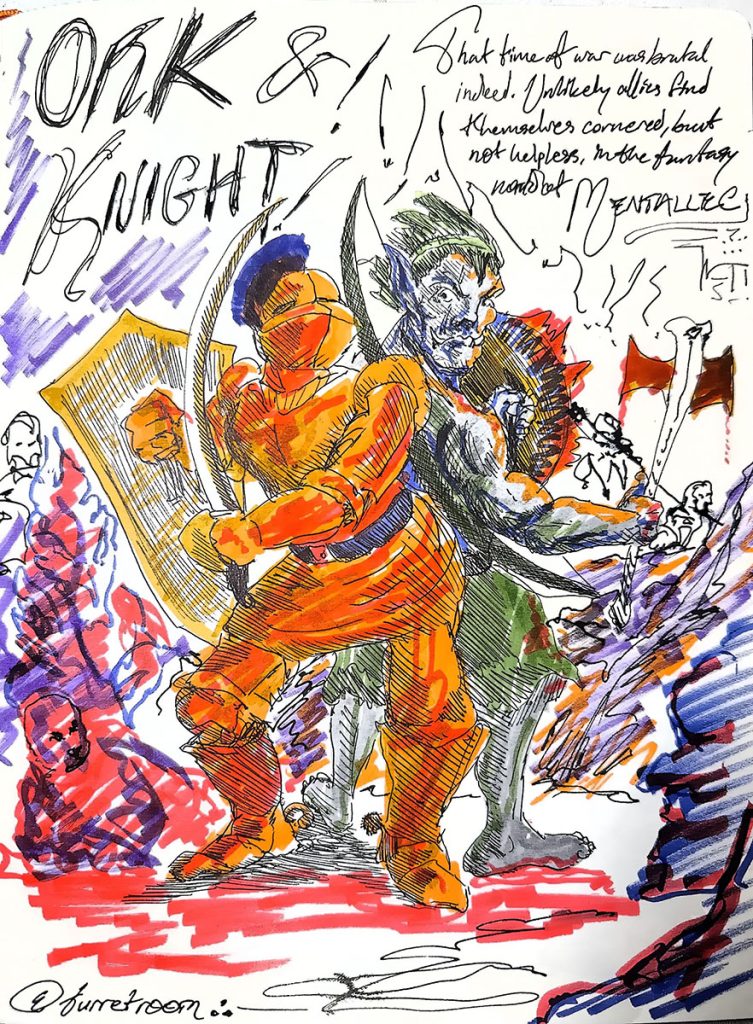 ORK &
KNIGHT!
That time of war was brutal
indeed. Unlikely allies find
themselves cornered, but
not helpless, in the fantasy
MENTALLEC
@furretroom